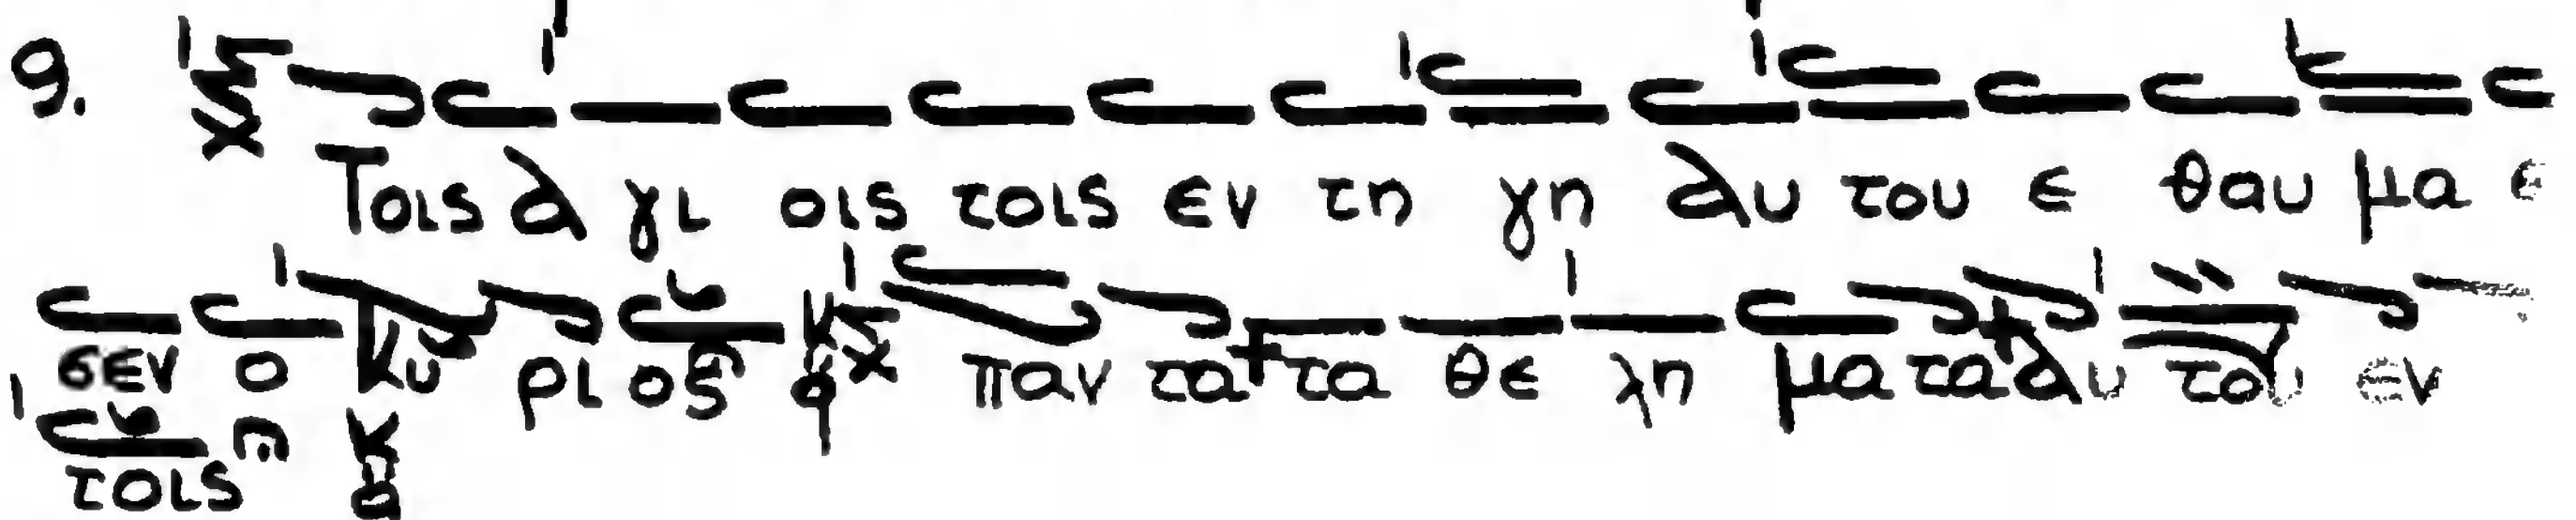 9. Τοις α γι οις τοις εν τη γη αυ του ε θαυ μα ε
σεν ο Κυ ρι ος παν τα τα θε λη μα τα αυ του εν
τοις